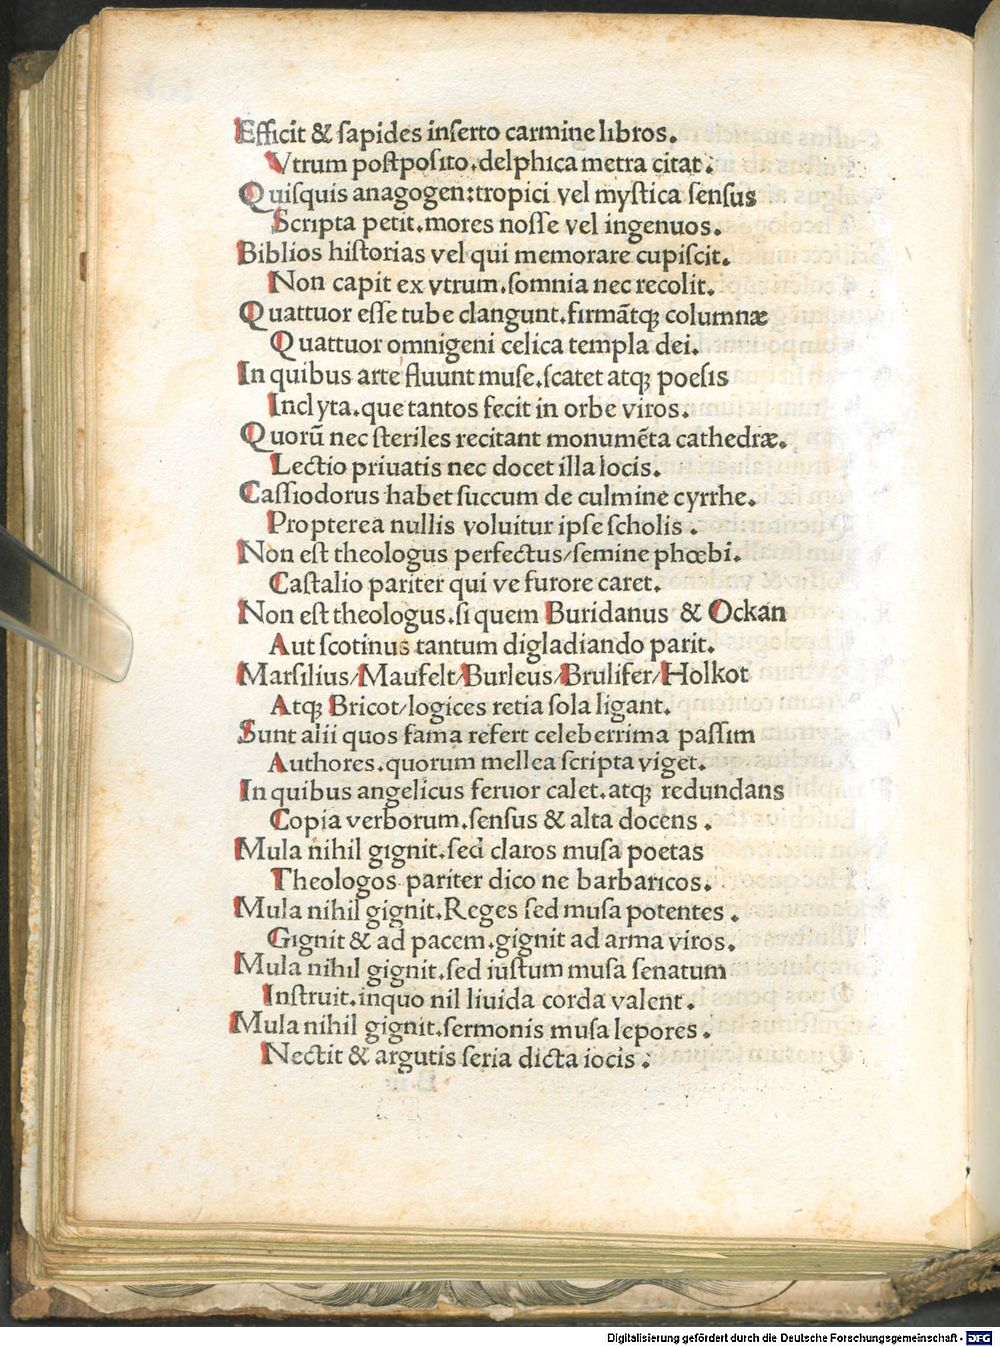 Efficit & ſapides inſerto carmine libros.
Vtrum poſtpoſito.delphica metra citat:
Quiſquis anagogen:tropici vel myſtica ſenſus
Scripta petit.mores noſſe vel ingenuos.
Biblios hiſtorias vel qui memorare cupiſcit.
Non capit ex vtrum.ſomnia nec recolit.
Quattuor eſſe tube clangunt.firmãtqꝫ columnæ
Quattuor omnigeni celica templa dei.
In quibus arte fluunt muſe.ſcatet atqꝫ poeſis
Inclyta.que tantos fecit in orbe viros.
Quorũ nec ſteriles recitant monumẽta cathedræ.
Lectio priuatis nec docet illa locis.
Caſſiodorus habet ſuccum de culmine cyrrhe.
Propterea nullis voluitur ipſe ſcholis.
Non eſt theologus perfectus/ſemine phœbi.
Caſtalio pariter qui ve furore caret.
Non eſt theologus.ſi quem Buridanus & Ockan
Aut ſcotinus tantum digladiando parit.
Marſilius/Maufelt/Burleus/Brulifer/Holkot
Atqꝫ Bricot/logices retia ſola ligant.
Sunt alii quos fama refert celeberrima paſſim
Authores.quorum mellea ſcripta viget.
In quibus angelicus feruor calet.atqꝫ redundans
Copia verborum.ſenſus & alta docens.
Mula nihil gignit.ſed claros muſa poetas
Theologos pariter dico ne barbaricos.
Mula nihil gignit.Reges ſed muſa potentes.
Gignit & ad pacem.gignit ad arma viros.
Mula nihil gignit.ſed iuſtum muſa ſenatum
Inſtruit.inquo nil liuida corda valent.
Mula nihil gignit.ſermonis muſa lepores.
Nectit & argutis ſeria dicta iocis:
Digitalisierung gefördert durch die Deutsche Forschungsgemeinschaft - DFG